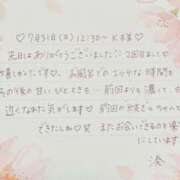 ♡ 7月31日(木) 12:30〜 K様 ♡
先日はありがとうございました♡♡ 2回目まして
嬉しかったです♡ お風呂での エッチな 時間も
その後の甘いひとときも… 前回よりも 濃くて
近くなれた気がします♡ 前回の
できたしね♡ またお会いできるのを楽
にしています
湊